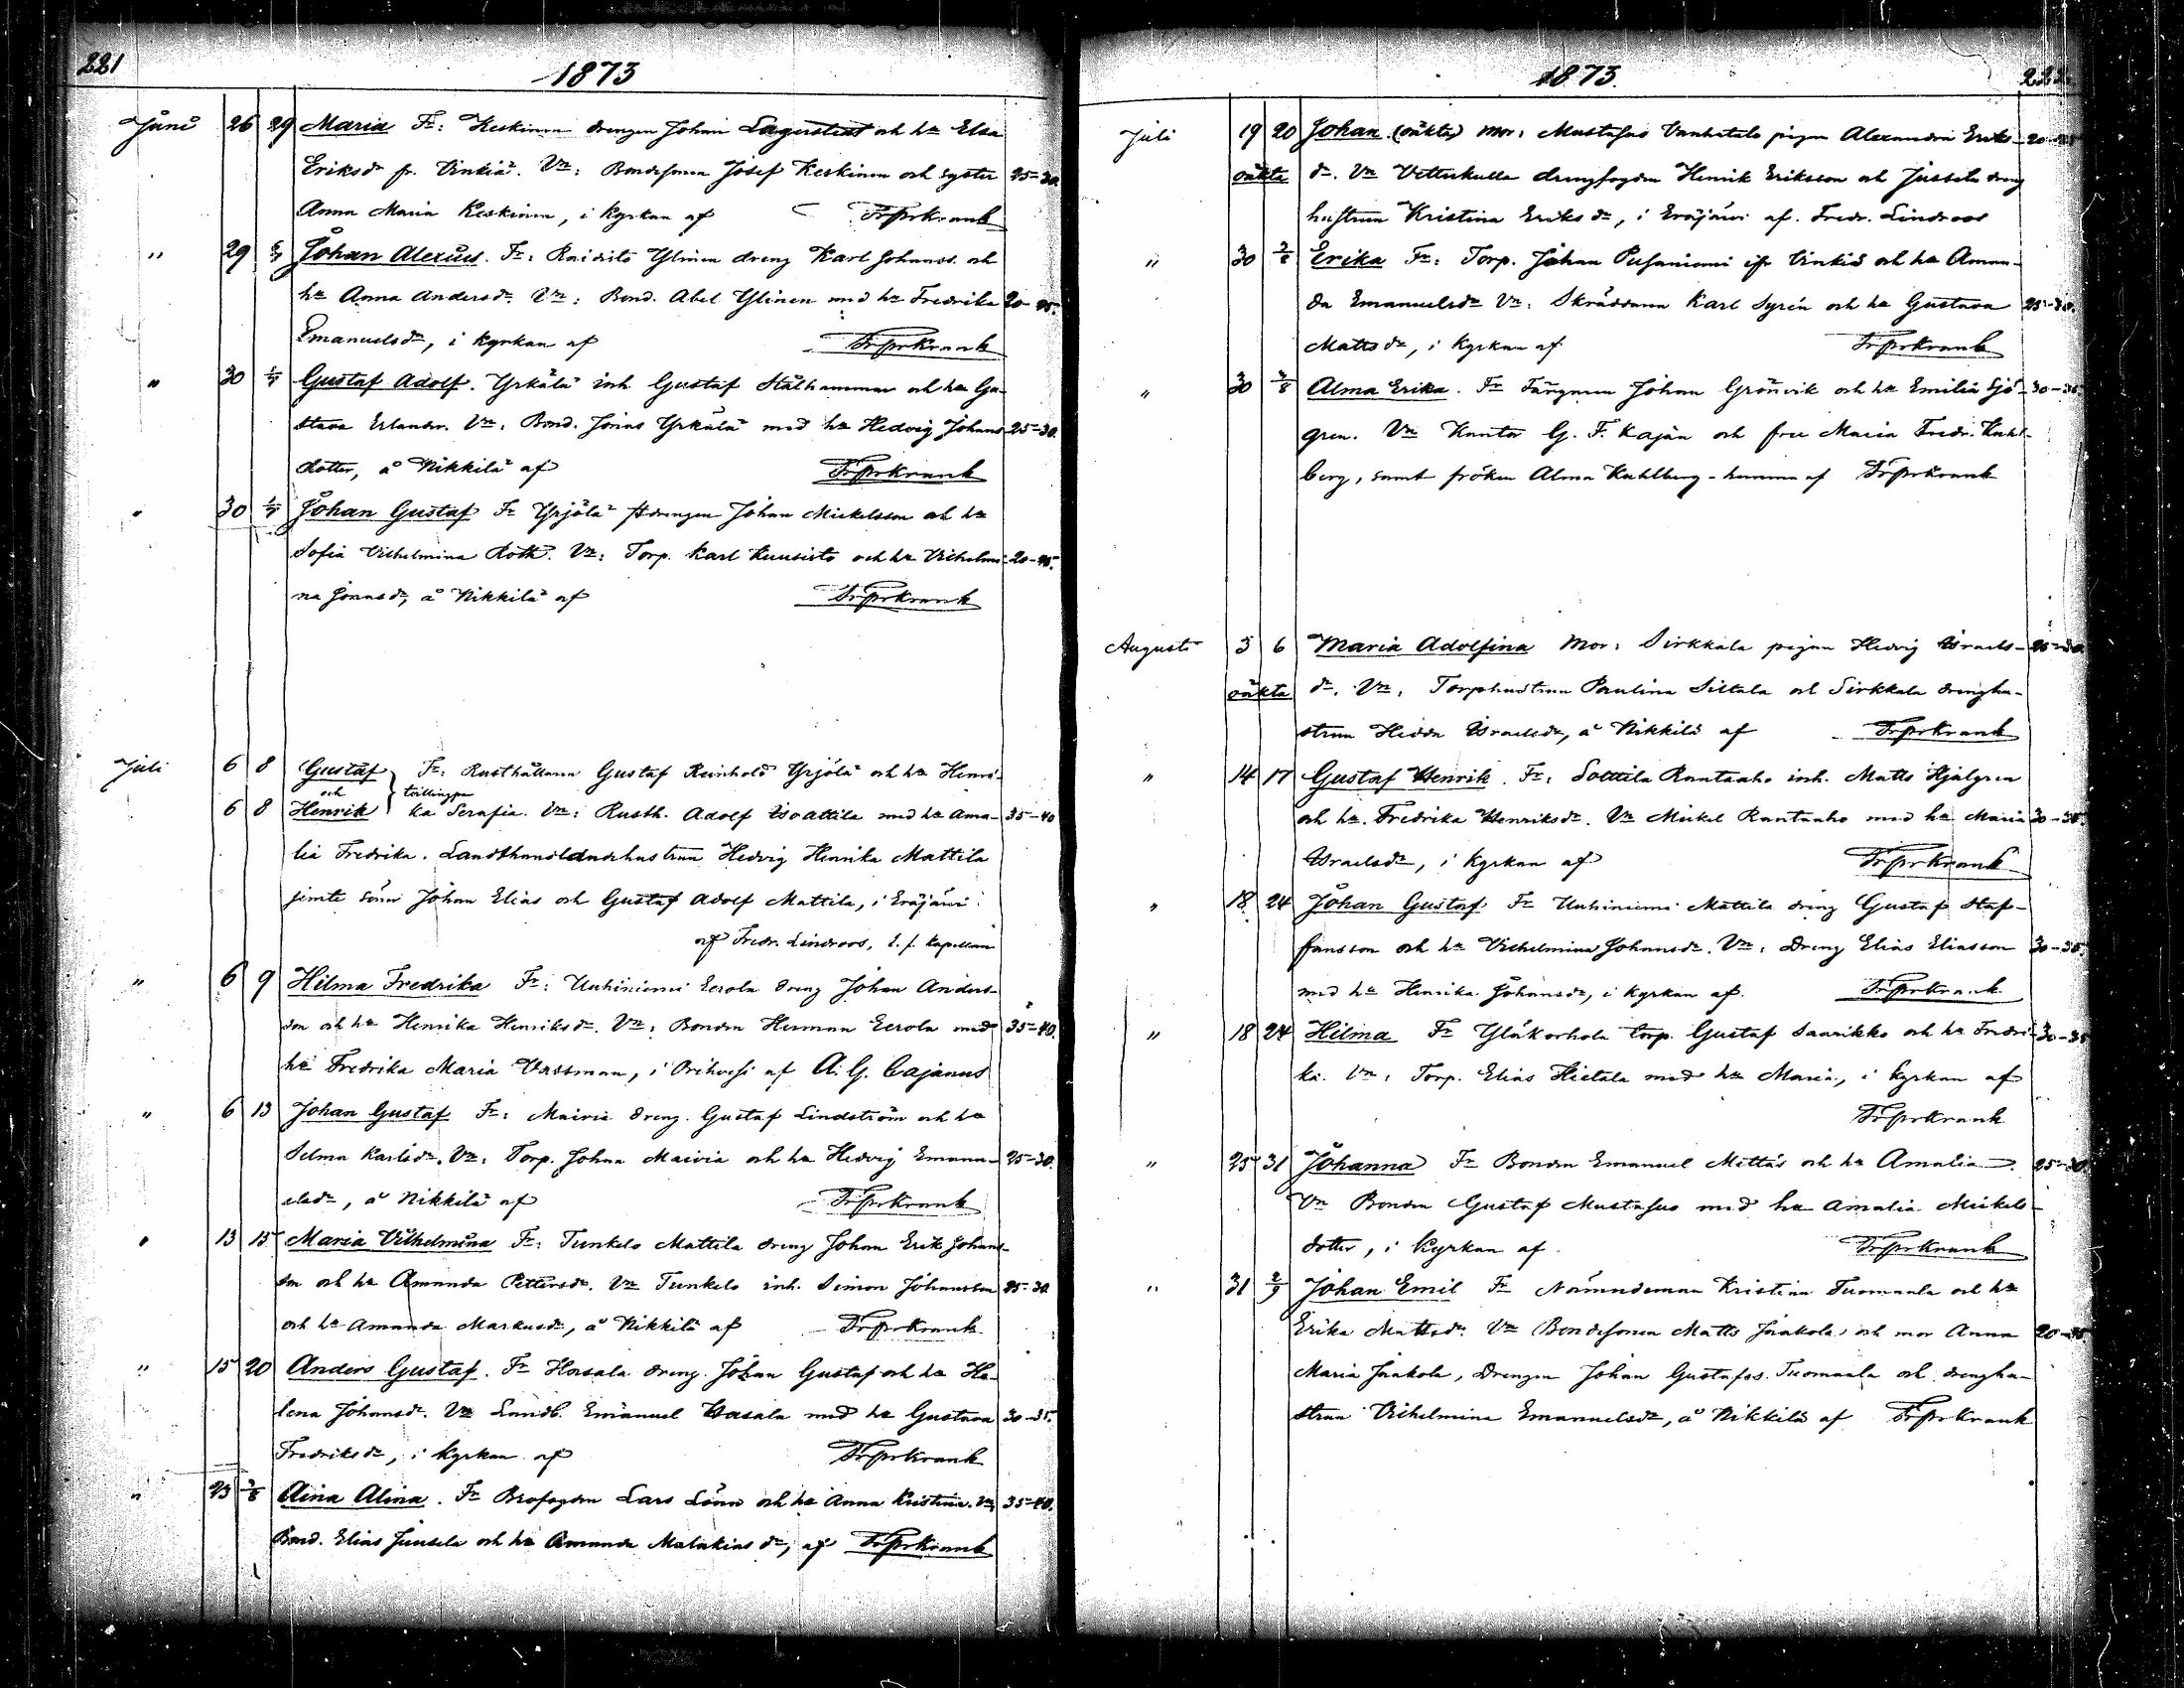 221
1873
Juni 26 29 Maria Fr: Keskinen drengen Johan Lagerstedt och ha Elsa
Eriksdr fr. Vinkiä. Vn: Bondesonen Josef Keskinen och syster 25-30.
Anna Maria Keskinen, i kyrkan af FrprKrank
" 29 Johan Alexius. Fr: Ylinen dreng Karl Johanss. och
ha Anna Andersdr. Vn: Bond. Abel Ylinen med ha Fredrika 20-25.
Emanuelsdr, i kyrkan af FrprKrank
" 30 Gustaf Adolf. Yrkälä inh Gustaf Stålhammar och ha Gu-
stava Erlandsr. Vn: Bond. Jonas Yrkälä med ha Hedvig Johans- 25-30.
dotter, å Nikkilä af FrprKrank
" 30 Johan Gustaf Fr Yrjölä drengen Johan Mickelsson och ha
Sofia Vilhelmina Roth. Vn: Torp. Karl Kuusisto och ha Vilhelmi- 20-25.
na Jonasdr, å Nikkilä af FrprKrank
Juli 6 8 Gustaf Fr: Rusthållaren Gustaf Reinhold Yrjölä och ha Henri-
och tvillingpr
6 8 Henrik ka Serafia. Vn: Rusth. Adolf Isoattila med ha Ama- 35-40
lia Fredrika. Landthandlandehustrun Hedvig Henrika Mattila
jemte söner Johan Elias och Gustaf Adolf Mattila, i Eräjärvi
af Fredr. Lindroos, t.f. Kapellan
" 6 9 Hilma Fredrika Fr: Uuhiniemi Eerola dreng Johan Anders-
son och ha Henrika Henriksdr. Vn: Bonden Herman Eerola med 35-40.
ha Fredrika Maria Vassman, i Orihvesi af A. G. Cajanus
" 6 13 Johan Gustaf Fr: Maivia dreng. Gustaf Lindström och ha
Selma Karlsdr. Vn: Torp. Johan Maivia och ha Hedvig Emanu- 25-30.
elsdr, å Nikkilä af FrprKrank
" 13 15 Maria Vilhelmina Fr: Tunkelo Mattila dreng Johan Erik Johans-
son och ha Amanda Pettersdr. Vn Tunkelo inh. Simon Johansson 25-30
och ha Amanda Markusdr, å Nikkilä af FrprKrank
" 15 20 Anders Gustaf. Fr Hassala dreng. Johan Gustaf och ha He-
lena Johansdr. Vn Landb. Emanuel Hassala med ha Gustava 30-35.
Fredriksdr, i kyrkan af FrprKrank
" 23 Aina Alina. Fr Brofogden Lars Lönn och ha Anna Kristina. Vn: 35-40.
Bond. Elias Juusela och ha Amanda Malakiasdr, af FrprKrank
1873.
222
Juli 19 20 Johan (oäkta) Mor: Mustasuo Vanhatalo pigan Alexandra Eriks- 20-25
oäkta dr. Vn Vetterkulla drengfogden Henrik Eriksson och Jussila dreng
hustrun Kristina Eriksdr, i Eräjärvi af. Fredr. Lindroos
" 30 2/8 Erika Fr: Torp. Johan Pusaniemi ifr Vinkiä och ha Aman-
da Emanuelsdr Vn: Skräddaren Karl Syrén och ha Gustava 25-30.
Mattsdr, i kyrkan af FrprKrank
" 30 3/8 Alma Erika. Fr Färgaren Johan Grönvik och ha Emilia Sjö- 30-35.
gren. Vn Kantor G. F. Kajan och fru Maria Fredr. Kuhl-
berg, samt fröken Alma Kuhlberg - hemma af FrprKrank
Augusti 3 6 Maria Adolfina Mor: Sirkkala pigan Hedvig Israels- 25-30.
oäkta dr. Vn: Torphustrun Paulina Siltala och Sirkkala drenghu-
strun Hedda Israelsdr, å Nikkilä af FrprKrank
" 14 17 Gustaf Henrik. Fr: Sottila Rantaaho inh. Matts Hjelgren
och ha. Fredrika Henriksdr. Vn Mickel Rantaaho med ha Maria 30-35.
Israelsdr, i kyrkan af FrprKrank
" 18 24 Johan Gustaf Fr Uuhiniemi Mattila dreng Gustaf Staf-
fansson och ha Vilhelmina Johansdr. Vn: Dreng Elias Eliasson 30-35.
med ha Henrika Johansdr, i kyrkan af. FrprKrank
" 18 24 Hilma Fr Yläkorhola torp. Gustaf Saarikko och ha Fredri- 30-35
ka. Vn: Torp. Elias Hietala med ha Maria, i kyrkan af
FrprKrank
" 25 31 Johanna Fr Bonden Emanuel Mattås och ha Amalia. 25-30.
Vn Bonden Gustaf Mustasuo med ha Amalia Mickels-
dotter, i kyrkan af. FrprKrank
" 31 2/9 Johan Emil Fr Nämndeman Kristian Tuomaala och ha
Erika Mattsdr. Vn Bondesonen Matts Jaakola och mor Anna 20-25.
Maria Jaakola, Drengen Johan Gustafss. Tuomaala och drenghu-
strun Vilhelmina Emanuelsdr, å Nikkilä af FrprKrank